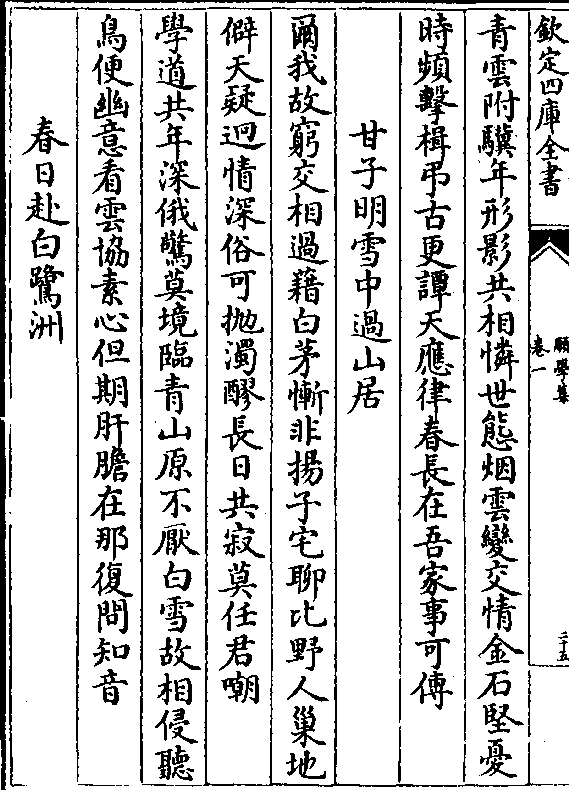 欽定四庫全書
願學集
卷一
二十五
青雲附驥年形影共相憐世態烟雲變交情金石堅憂
時頻擊楫弔古更譚天應律春長在吾家事可傳
甘子明雪中過山居
爾我故窮交相過藉白茅慚非揚子宅聊比野人巢地
僻天疑迥情深俗可拋濁醪長日共寂莫任君嘲
學道共年深俄驚莫境臨青山原不厭白雪故相侵聽
鳥便幽意看雲協素心但期肝膽在那復問知音
春日赴白鷺洲